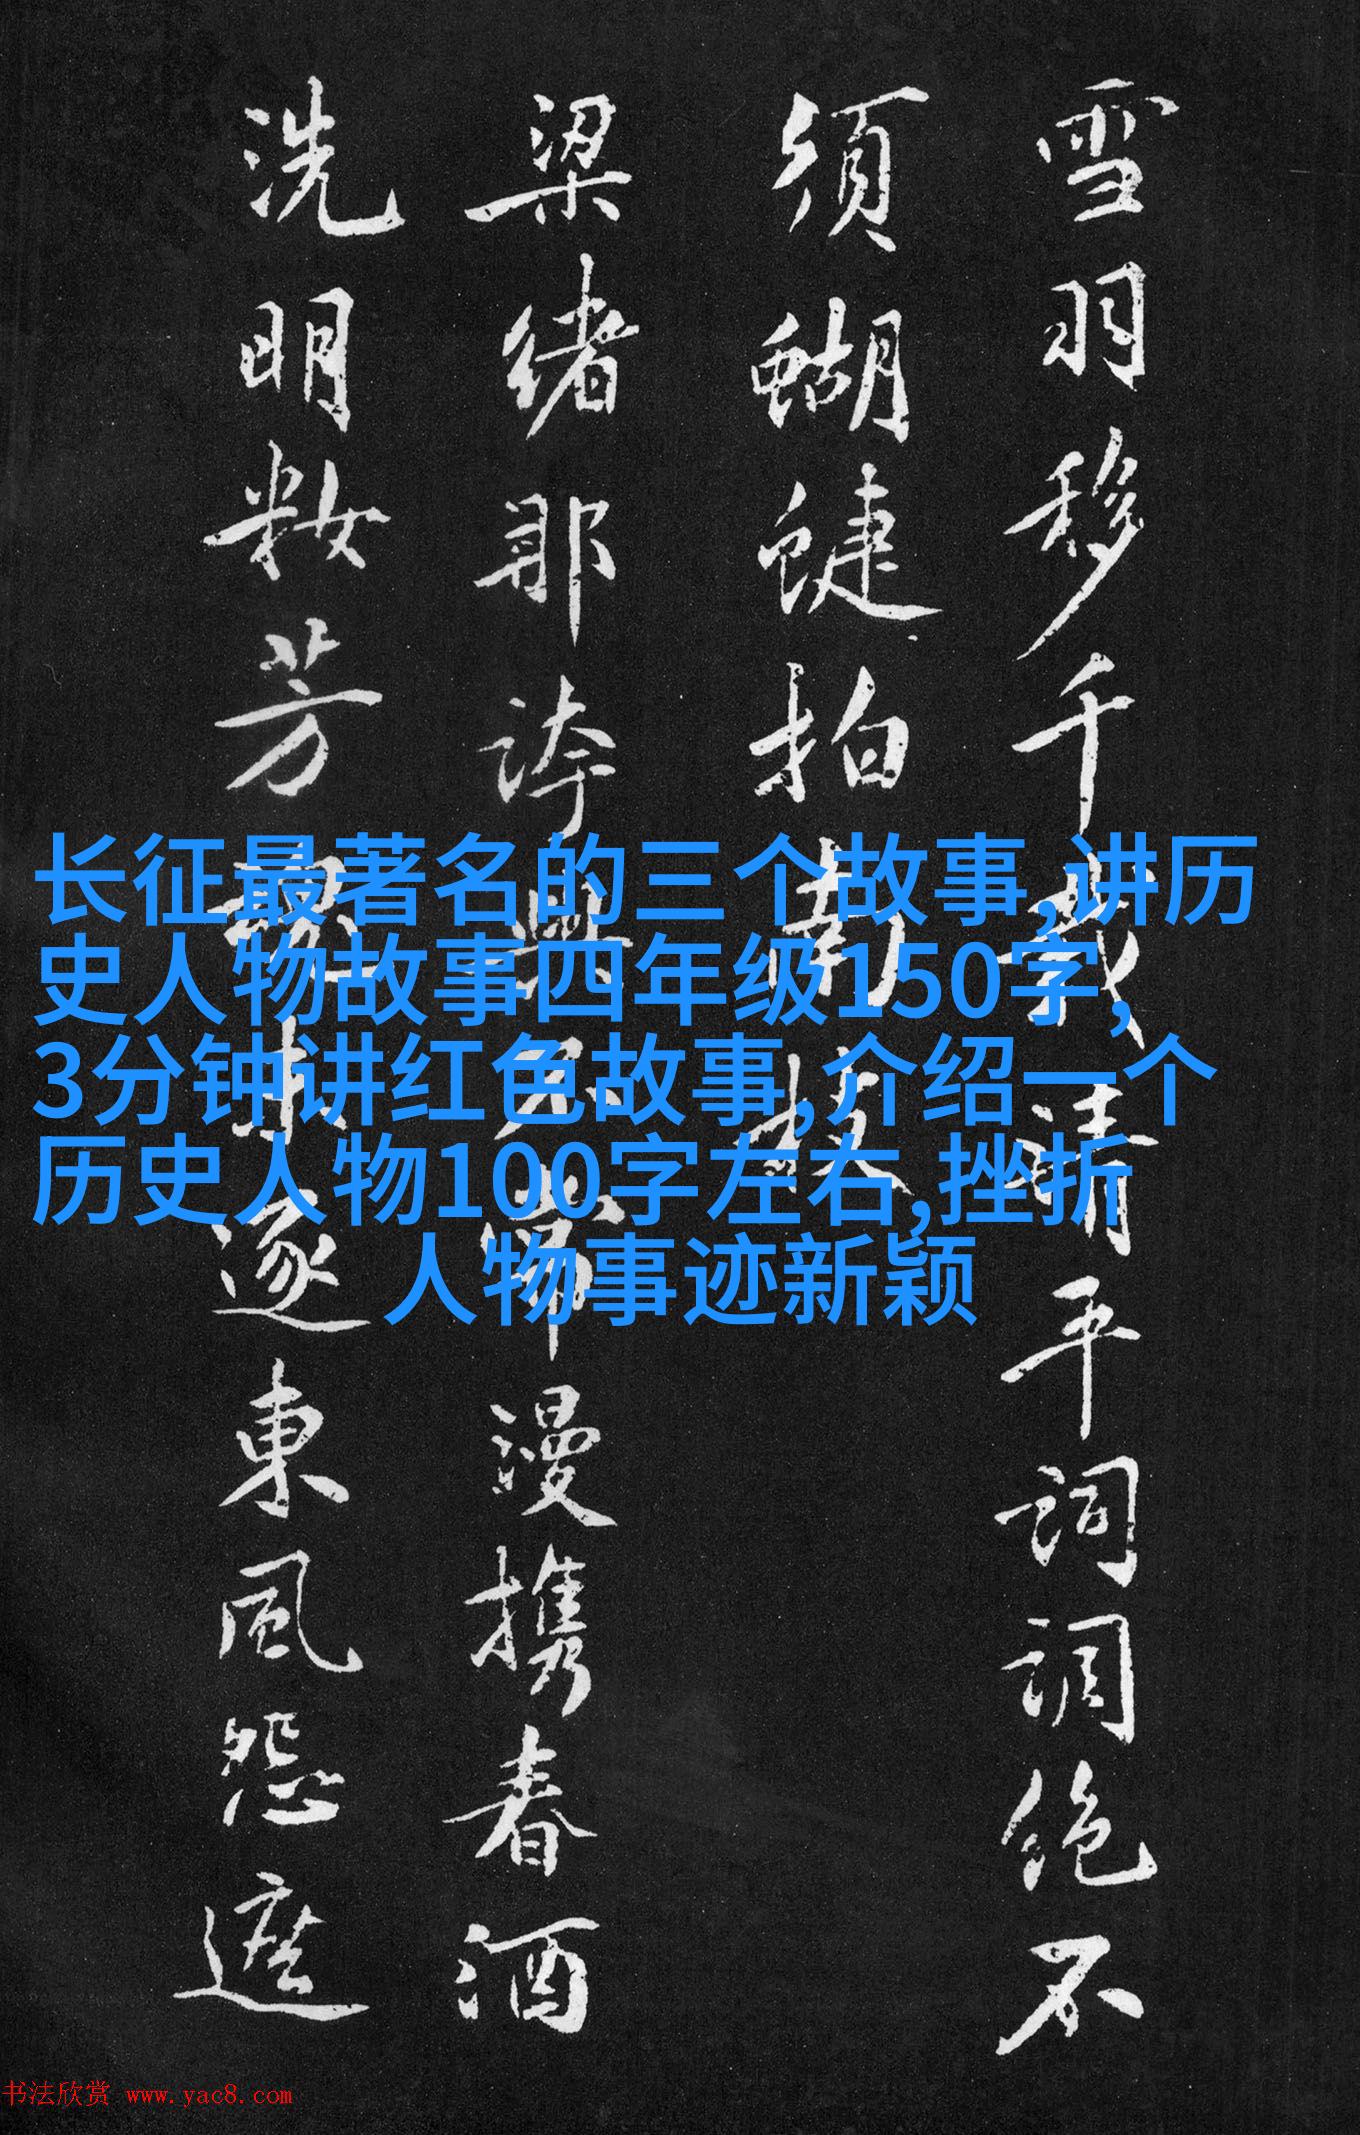 雪羽移千載清平詞調絶不
須蝴蜨拍南枝
梁緒那誇興不常漫携春酒
洗明籹芳魂未逐東風怨遮
长征最著名的三个故事,讲历
史人物故事四年级150字,
3分钟讲红色故事,介绍一个
历史人物100字左右,挫折
人物事迹新颖
书法欣赏 www.yac8.com